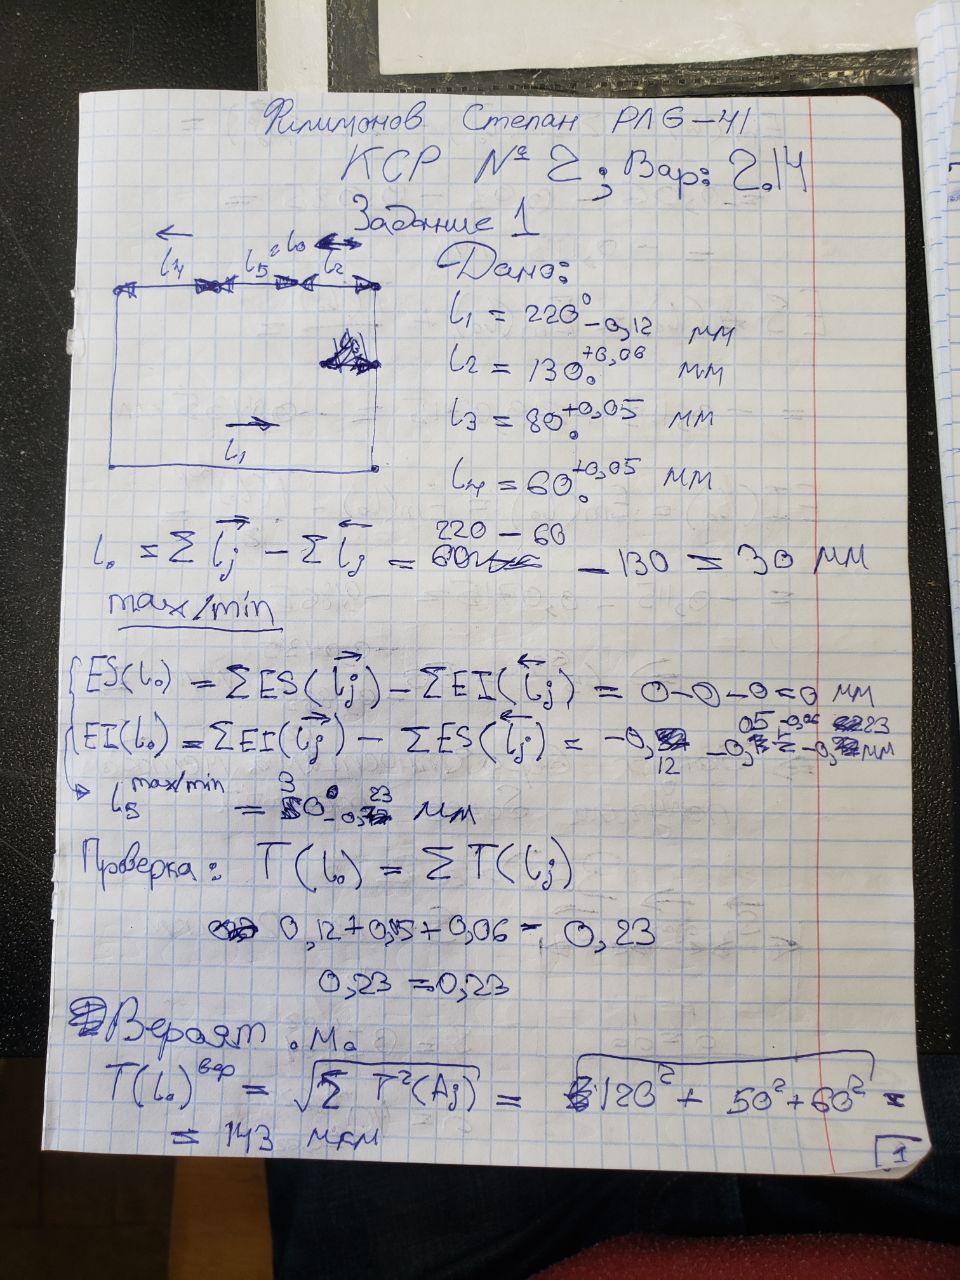 Филимонов Степан РЛ6-41
КСР № 2; Вар: 2.14
Задание 1
l4 l5 = l0 l2
l1
Дано:
l1 = 220 0 -0,12 мм
l2 = 130 +0,06 0 мм
l3 = 80 +0,05 0 мм
l4 = 60 +0,05 0 мм
l0 = Σ lj→ - Σ lj← = 220 - 60 - 130 = 30 мм
max/min
ES(l0) = ΣES(lj→) - ΣEI(lj←) = 0-0-0=0 мм
EI(l0) = ΣEI(lj→) - ΣES(lj←) = -0,12 -0,05 -0,06 = -0,23 мм
l5 max/min = 30 0 -0,23 мм
Проверка: T(l0) = ΣT(lj)
0,12+0,05+0,06 = 0,23
0,23 = 0,23
Вероят. М.
T(l0)вер = √Σ T²(Aj) = √120² + 50² + 60² =
= 143 мкм
1